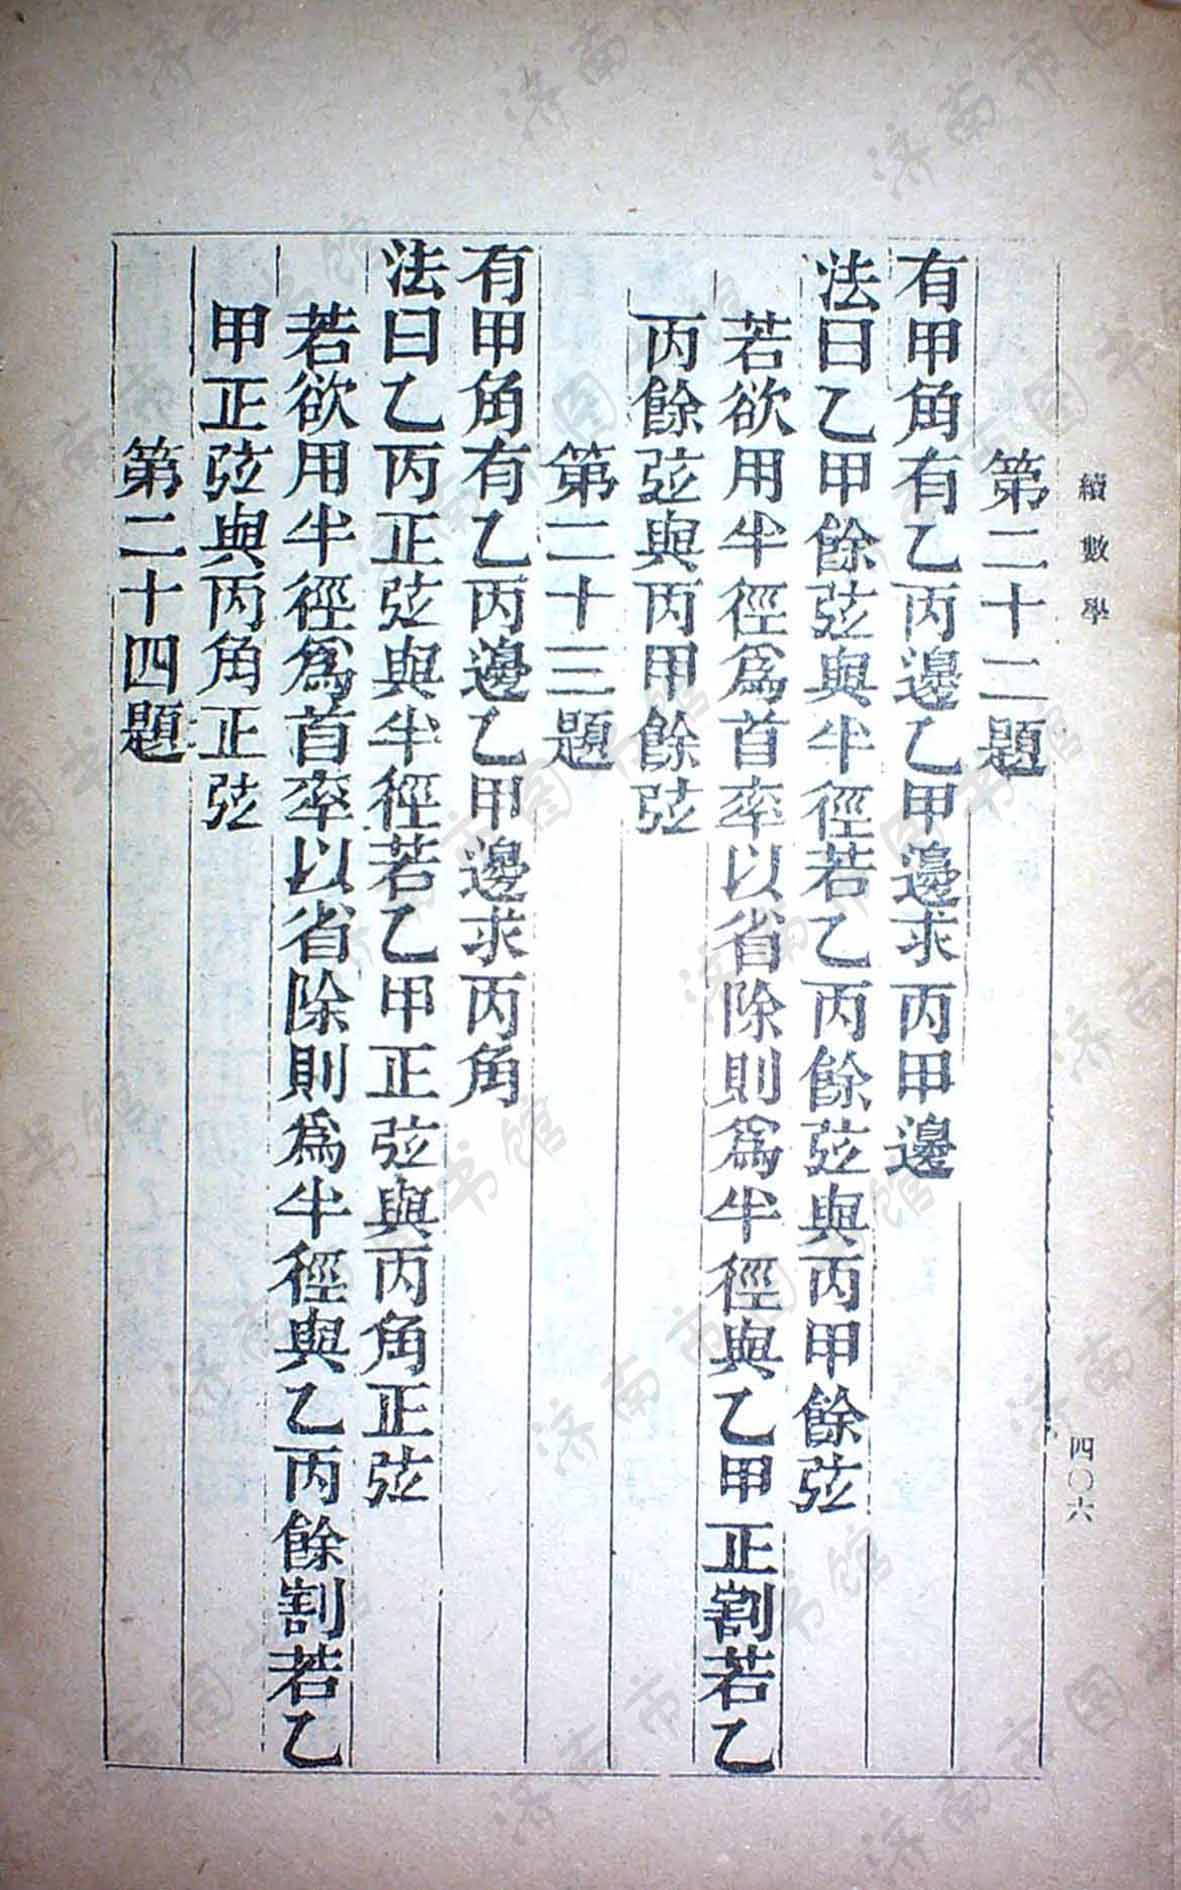 續數學
四〇六
第二十二題
有甲角有乙丙邊乙甲邊求丙甲邊
法曰乙甲餘弦與半徑若乙丙餘弦與丙甲餘弦
若欲用半徑爲首率以省除則爲半徑與乙甲正割若乙
丙餘弦與丙甲餘弦
第二十三題
有甲角有乙丙邊乙甲邊求丙角
法曰乙丙正弦與半徑若乙甲正弦與丙角正弦
若欲用半徑爲首率以省除則爲半徑與乙丙餘割若乙
甲正弦與丙角正弦
第二十四題
济南市图书馆